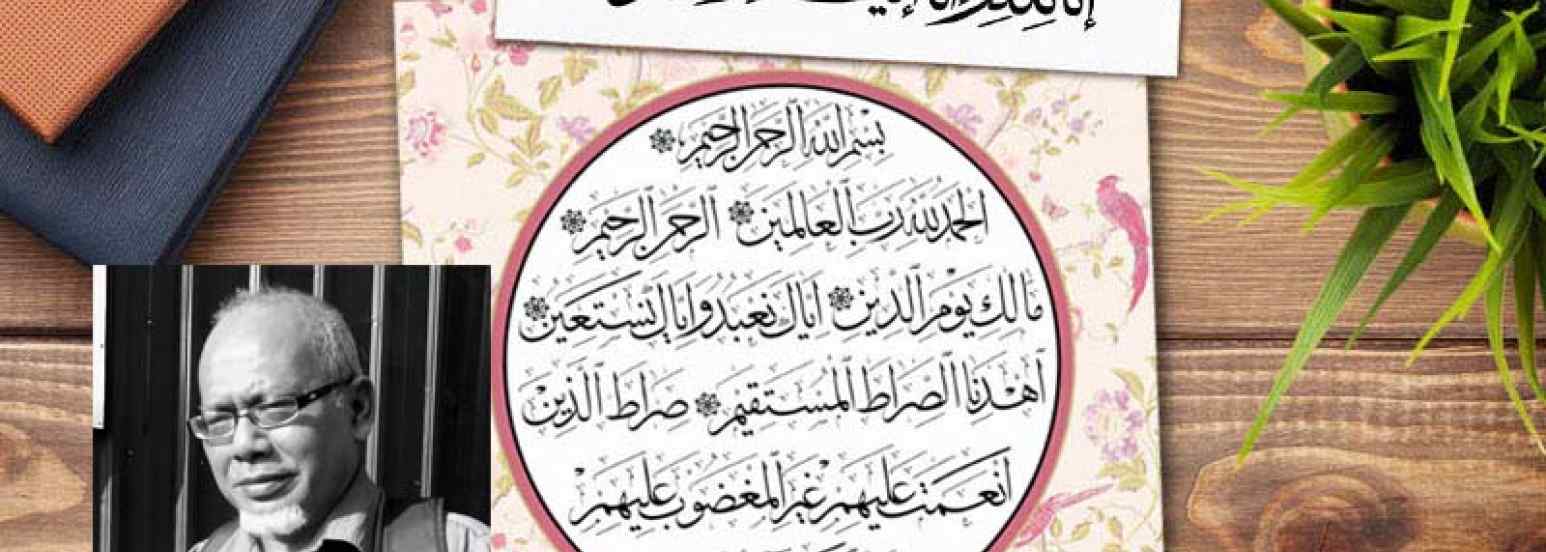 إنا لله وإنا إليه
بِسْمِ ٱللَّهِ ٱلرَّحْمَٰنِ ٱلرَّحِيمِ
ٱلْحَمْدُ لِلَّهِ رَبِّ ٱلْعَالَمِينَ ٱلرَّحْمَٰنِ ٱلرَّحِيمِ
مَالِكِ يَوْمِ ٱلدِّينِ إِيَّاكَ نَعْبُدُ وَإِيَّاكَ نَسْتَعِينُ
ٱهْدِنَا ٱلصِّرَاطَ ٱلْمُسْتَقِيمَ صِرَاطَ ٱلَّذِينَ
أَنْعَمْتَ عَلَيْهِمْ غَيْرِ ٱلْمَغْضُوبِ عَلَيْهِمْ